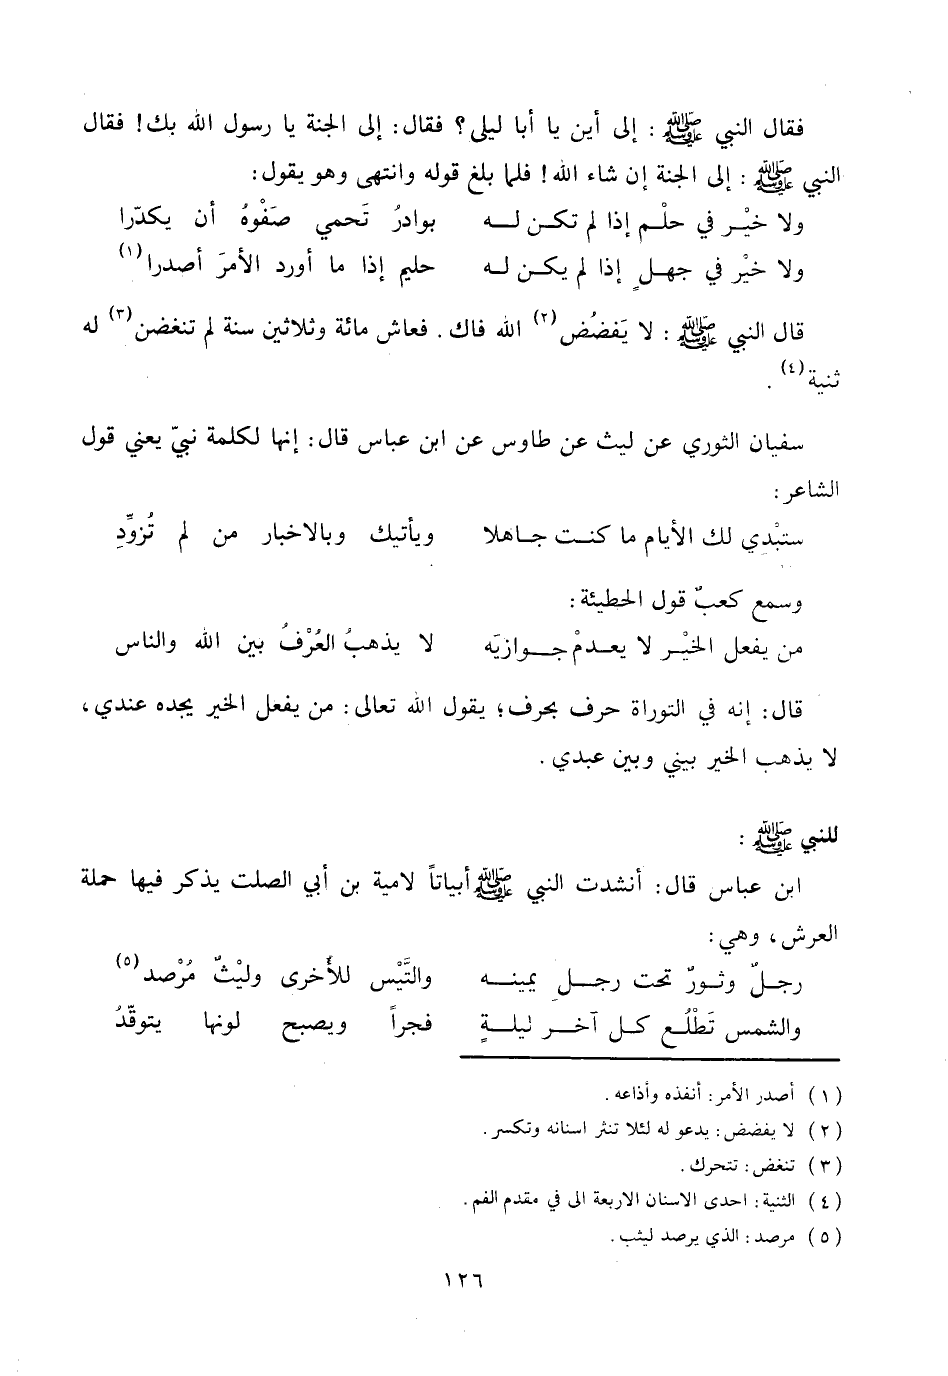 فقال النبي ﷺ : إلى أين يا أبا ليلى؟ فقال: إلى الجنة يا رسول الله بك! فقال
النبي ﷺ : إلى الجنة إن شاء الله! فلما بلغ قوله وانتهى وهو يقول:
ولا خيْـر في حلْـم إذا لم تكـن لـــه بوادرُ تَحمي صفْوهُ أن يكدّرا
ولا خيْر في جهـلٍ إذا لم يكـن لـه حليم إذا ما أورد الأمرَ أصدرا(١)
قال النبي ﷺ : لا يَفضُض(٢) الله فاك. فعاش مائة وثلاثين سنة لم تنغضن(٣) له
ثنية(٤).
سفيان الثوري عن ليث عن طاوس عن ابن عباس قال: إنها لكلمة نبيّ يعني قول
الشاعر:
ستبْدي لك الأيام ما كنـت جـاهلا ويأتيك وبالاخبار من لم تُزوِّدِ
وسمع كعبٌ قول الحطيئة:
من يفعل الخيْـر لا يعـدمْ جـوازيَه لا يذهبُ العُرْفُ بين الله والناس
قال: إنه في التوراة حرف بحرف؛ يقول الله تعالى: من يفعل الخير يجده عندي،
لا يذهب الخير بيني وبين عبدي.
للنبي ﷺ :
ابن عباس قال: أنشدت النبي ﷺ أبياتاً لامية بن أبي الصلت يذكر فيها حملة
العرش، وهي:
رجـلٌ وثـورٌ تحت رجـلِ يمينـه والتَّيْس للأخرى وليْثٌ مُرْصد(٥)
والشمس تَطْلُع كـل آخـر ليلـةٍ فجراً ويصبح لونها يتوقّدُ
(١) أصدر الأمر: أنفذه وأذاعه.
(٢) لا يفضض: يدعو له لئلا تنثر اسنانه وتكسر.
(٣) تنغض: تتحرك.
(٤) الثنية: احدى الاسنان الاربعة الى في مقدم الفم.
(٥) مرصد: الذي يرصد ليثب.
١٢٦